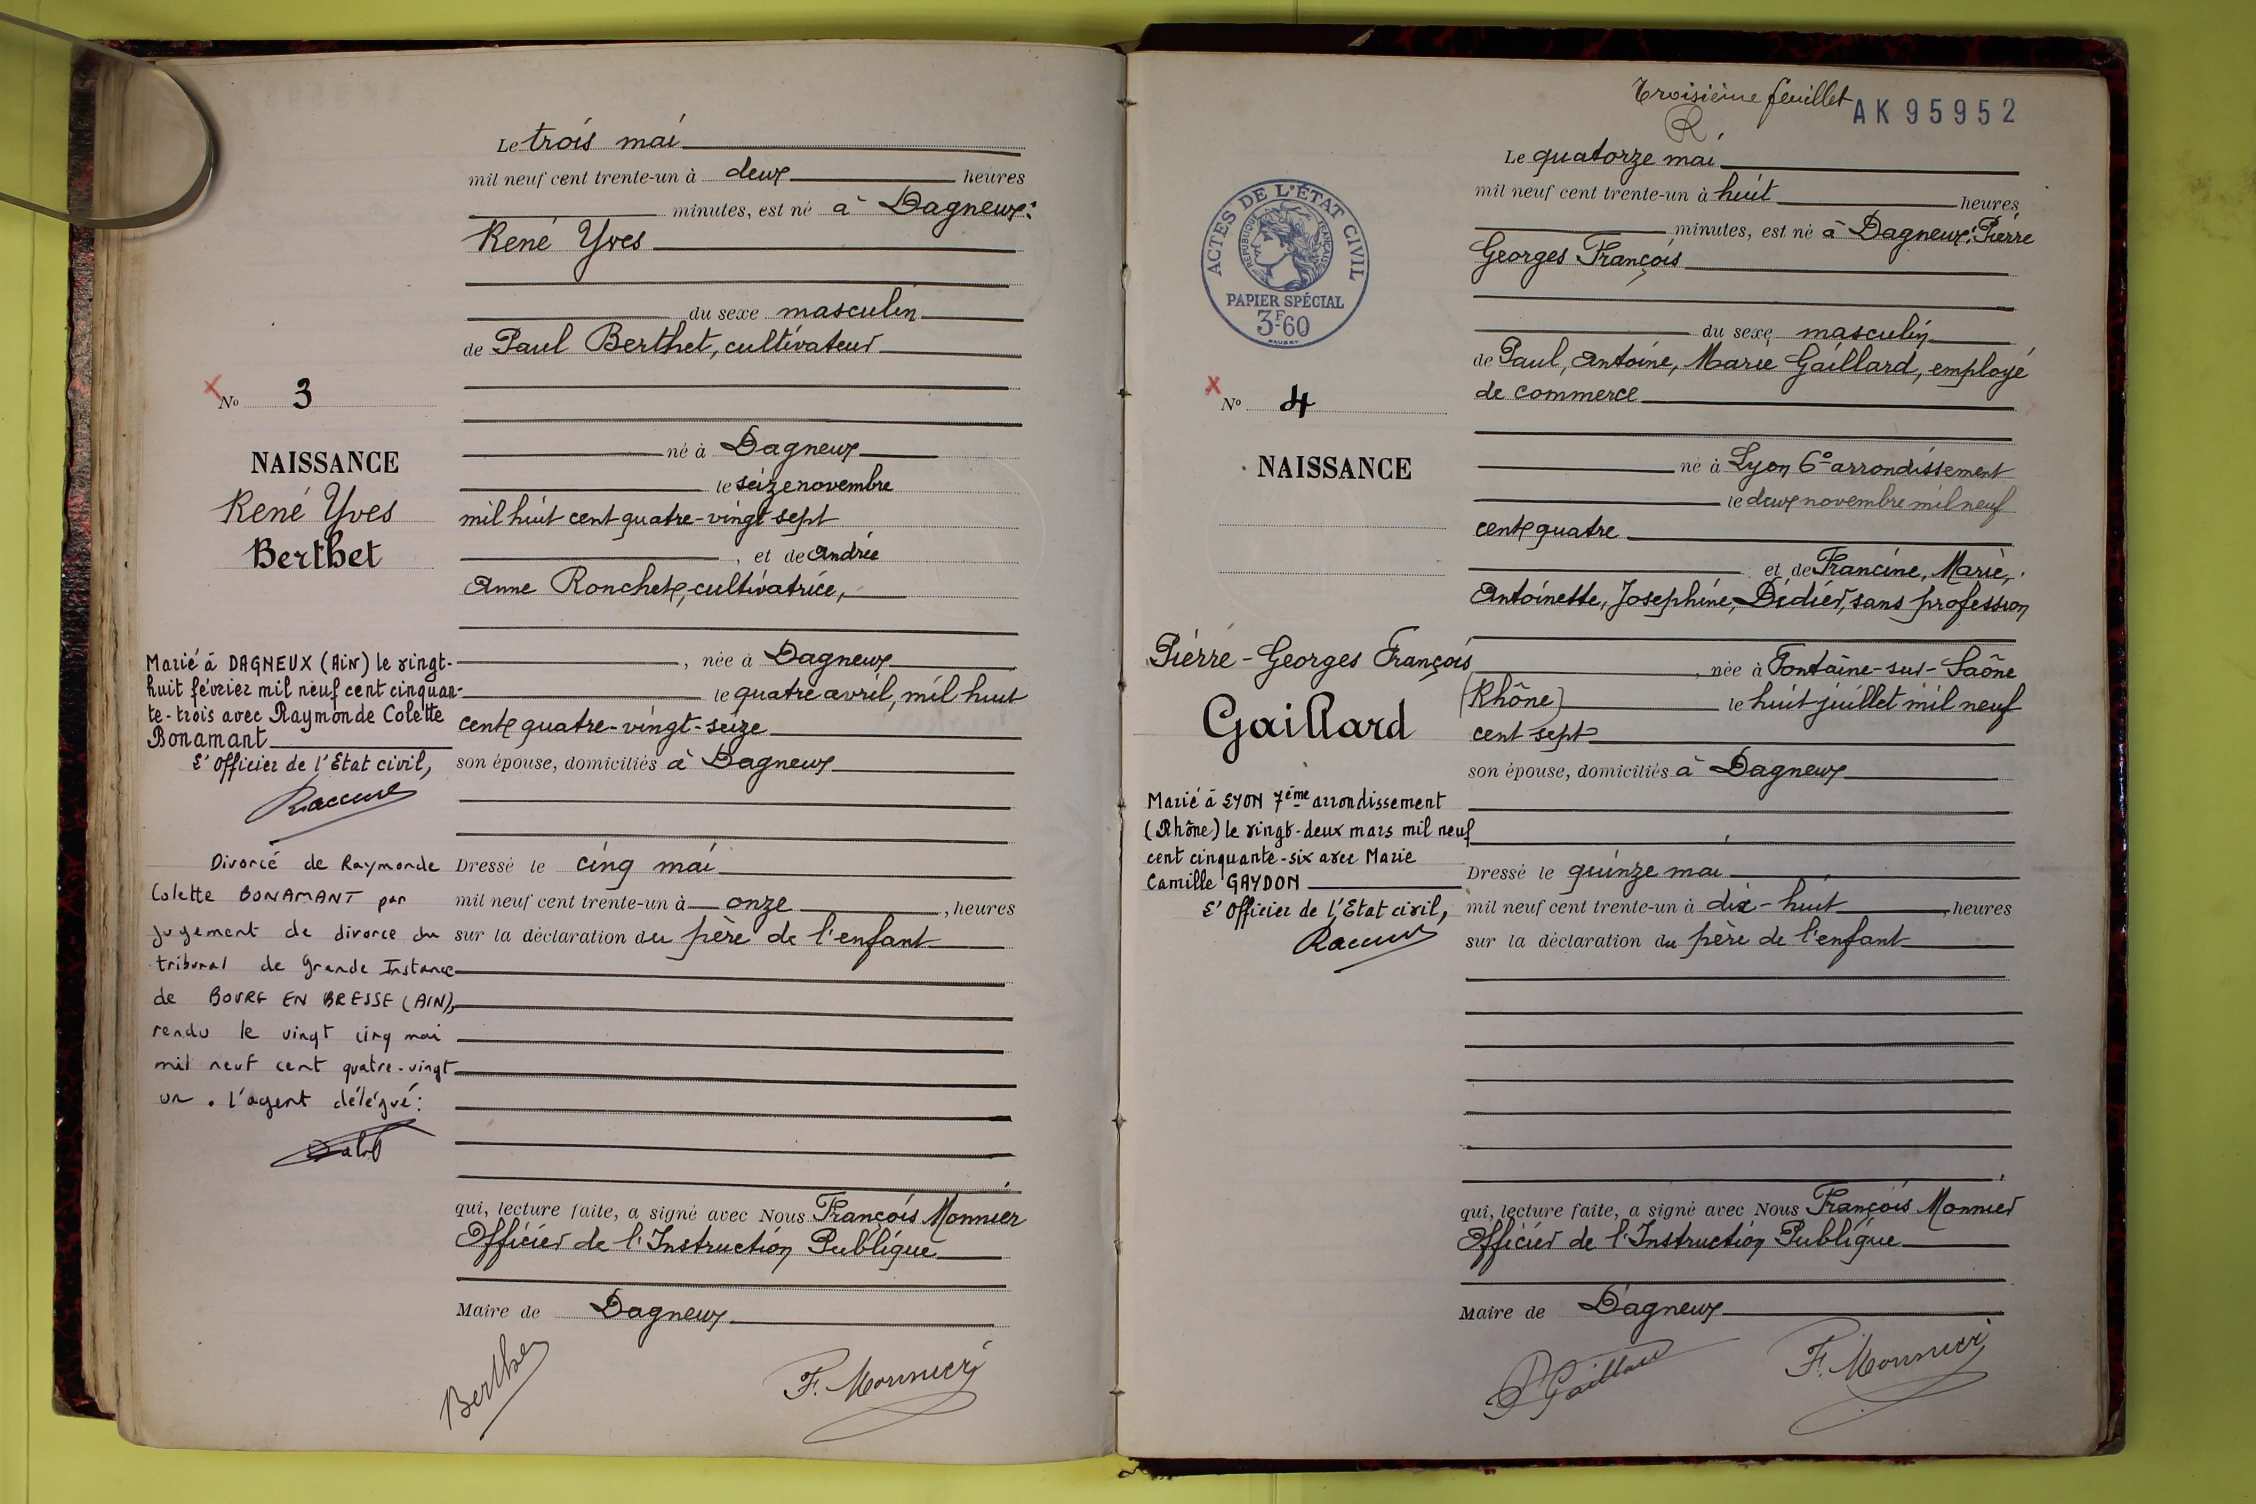 Le trois mai
mil neuf cent trente-un à deux heures
minutes, est né à Dagneux:
René Yves
du sexe masculin
de Paul Berthet, cultivateur
né à Dagneux
le seize novembre
mil huit cent quatre-vingt-sept
, et de Andrée
Anne Ronchet, cultivatrice,
, née à Dagneux
le quatre avril, mil huit
cent quatre-vingt-seize
son épouse, domiciliés à Dagneux
Dressé le cinq mai
mil neuf cent trente-un à onze, heures
sur la déclaration du père de l'enfant
qui, lecture faite, a signé avec Nous François Monnier
Officier de l'Instruction Publique
Maire de Dagneux
Berthet
F. Monnier
No 3
NAISSANCE
René Yves
Berthet
Marié à DAGNEUX (AIN) le vingt-
huit février mil neuf cent cinquan-
te-trois avec Raymonde Colette
Bonamant
L'Officier de l'Etat civil,
Divorcé de Raymonde
Colette BONAMANT par
jugement de divorce du
tribunal de Grande Instance
de BOURG EN BRESSE (AIN),
rendu le vingt cinq mai
mil neuf cent quatre-vingt
un. l'agent délégué:
Troisième feuillet
AK95952
R
ACTES DE L'ÉTAT CIVIL
RÉPUBLIQUE FRANÇAISE
PAPIER SPÉCIAL
3F60
Le quatorze mai
mil neuf cent trente-un à huit heures
minutes, est né à Dagneux: Pierre
Georges François
du sexe masculin
de Paul, Antoine, Marie Gaillard, employé
de commerce
né à Lyon 6e arrondissement
le deux novembre mil neuf
cent quatre
et de Francine, Marie,
Antoinette, Josephine, Didier, sans profession
, née à Fontaine-sur-Saône
(Rhône) le huit juillet mil neuf
cent sept
son épouse, domiciliés à Dagneux
Dressé le quinze mai
mil neuf cent trente-un à dix-huit, heures
sur la déclaration du père de l'enfant
qui, lecture faite, a signé avec Nous François Monnier
Officier de l'Instruction Publique
Maire de Dagneux
P Gaillard
F. Monnier
No 4
NAISSANCE
Pierre-Georges François
Gaillard
Marié à LYON 7ème arrondissement
(Rhône) le vingt-deux mars mil neuf
cent cinquante-six avec Marie
Camille GAYDON
L'Officier de l'Etat civil,